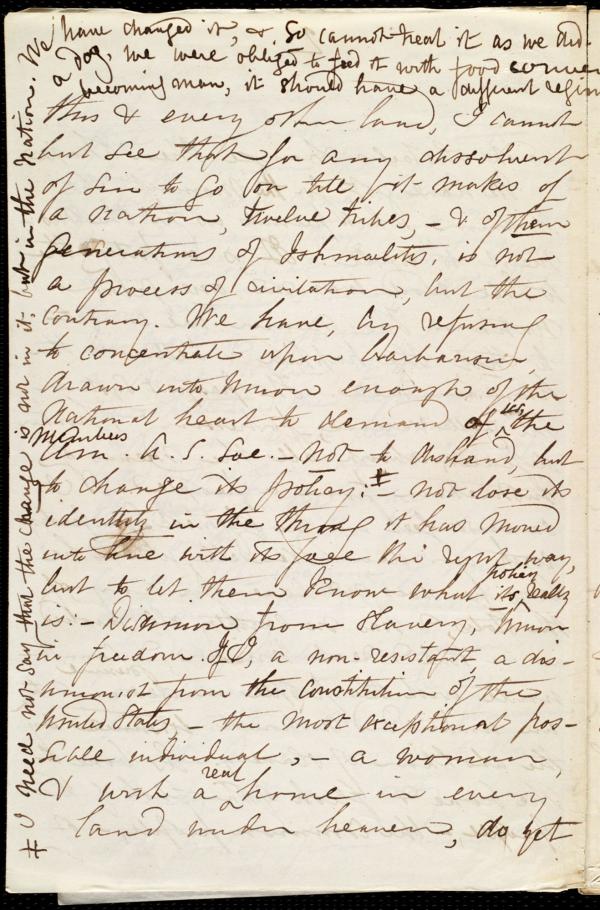 have changed it, &, so cannot treat it as we did
a dog, we were obliged to feed it with food
becoming man, it should have a different
this & every other land, I cannot
but see that for any dissolvent
of sin to go on till it makes of
a nation, twelve tribes, - & of them
generations of Ishmaelites, is not
a process of civilization, but the
contrary. We have, by refusing
to concentrate upon barbarism,
drawn into Union enough of the
National heart to demand of us, the
members
Am. A. S. Soc. - not to disband, but
to change its policy: ‡ - not lose its
identity in the thing it has moved
into line with its face the right way,
but to let them know what its policy really
is: - Disunion from Slavery, Union
in freedom. If I, a non-resistant, a dis-
unionist from the constitution of the
United States - the most exceptional pos-
sible individual, - a woman,
& with a real home in every
land under heaven, do yet
‡ I need not say that the change is not in it, but in the Nation. We